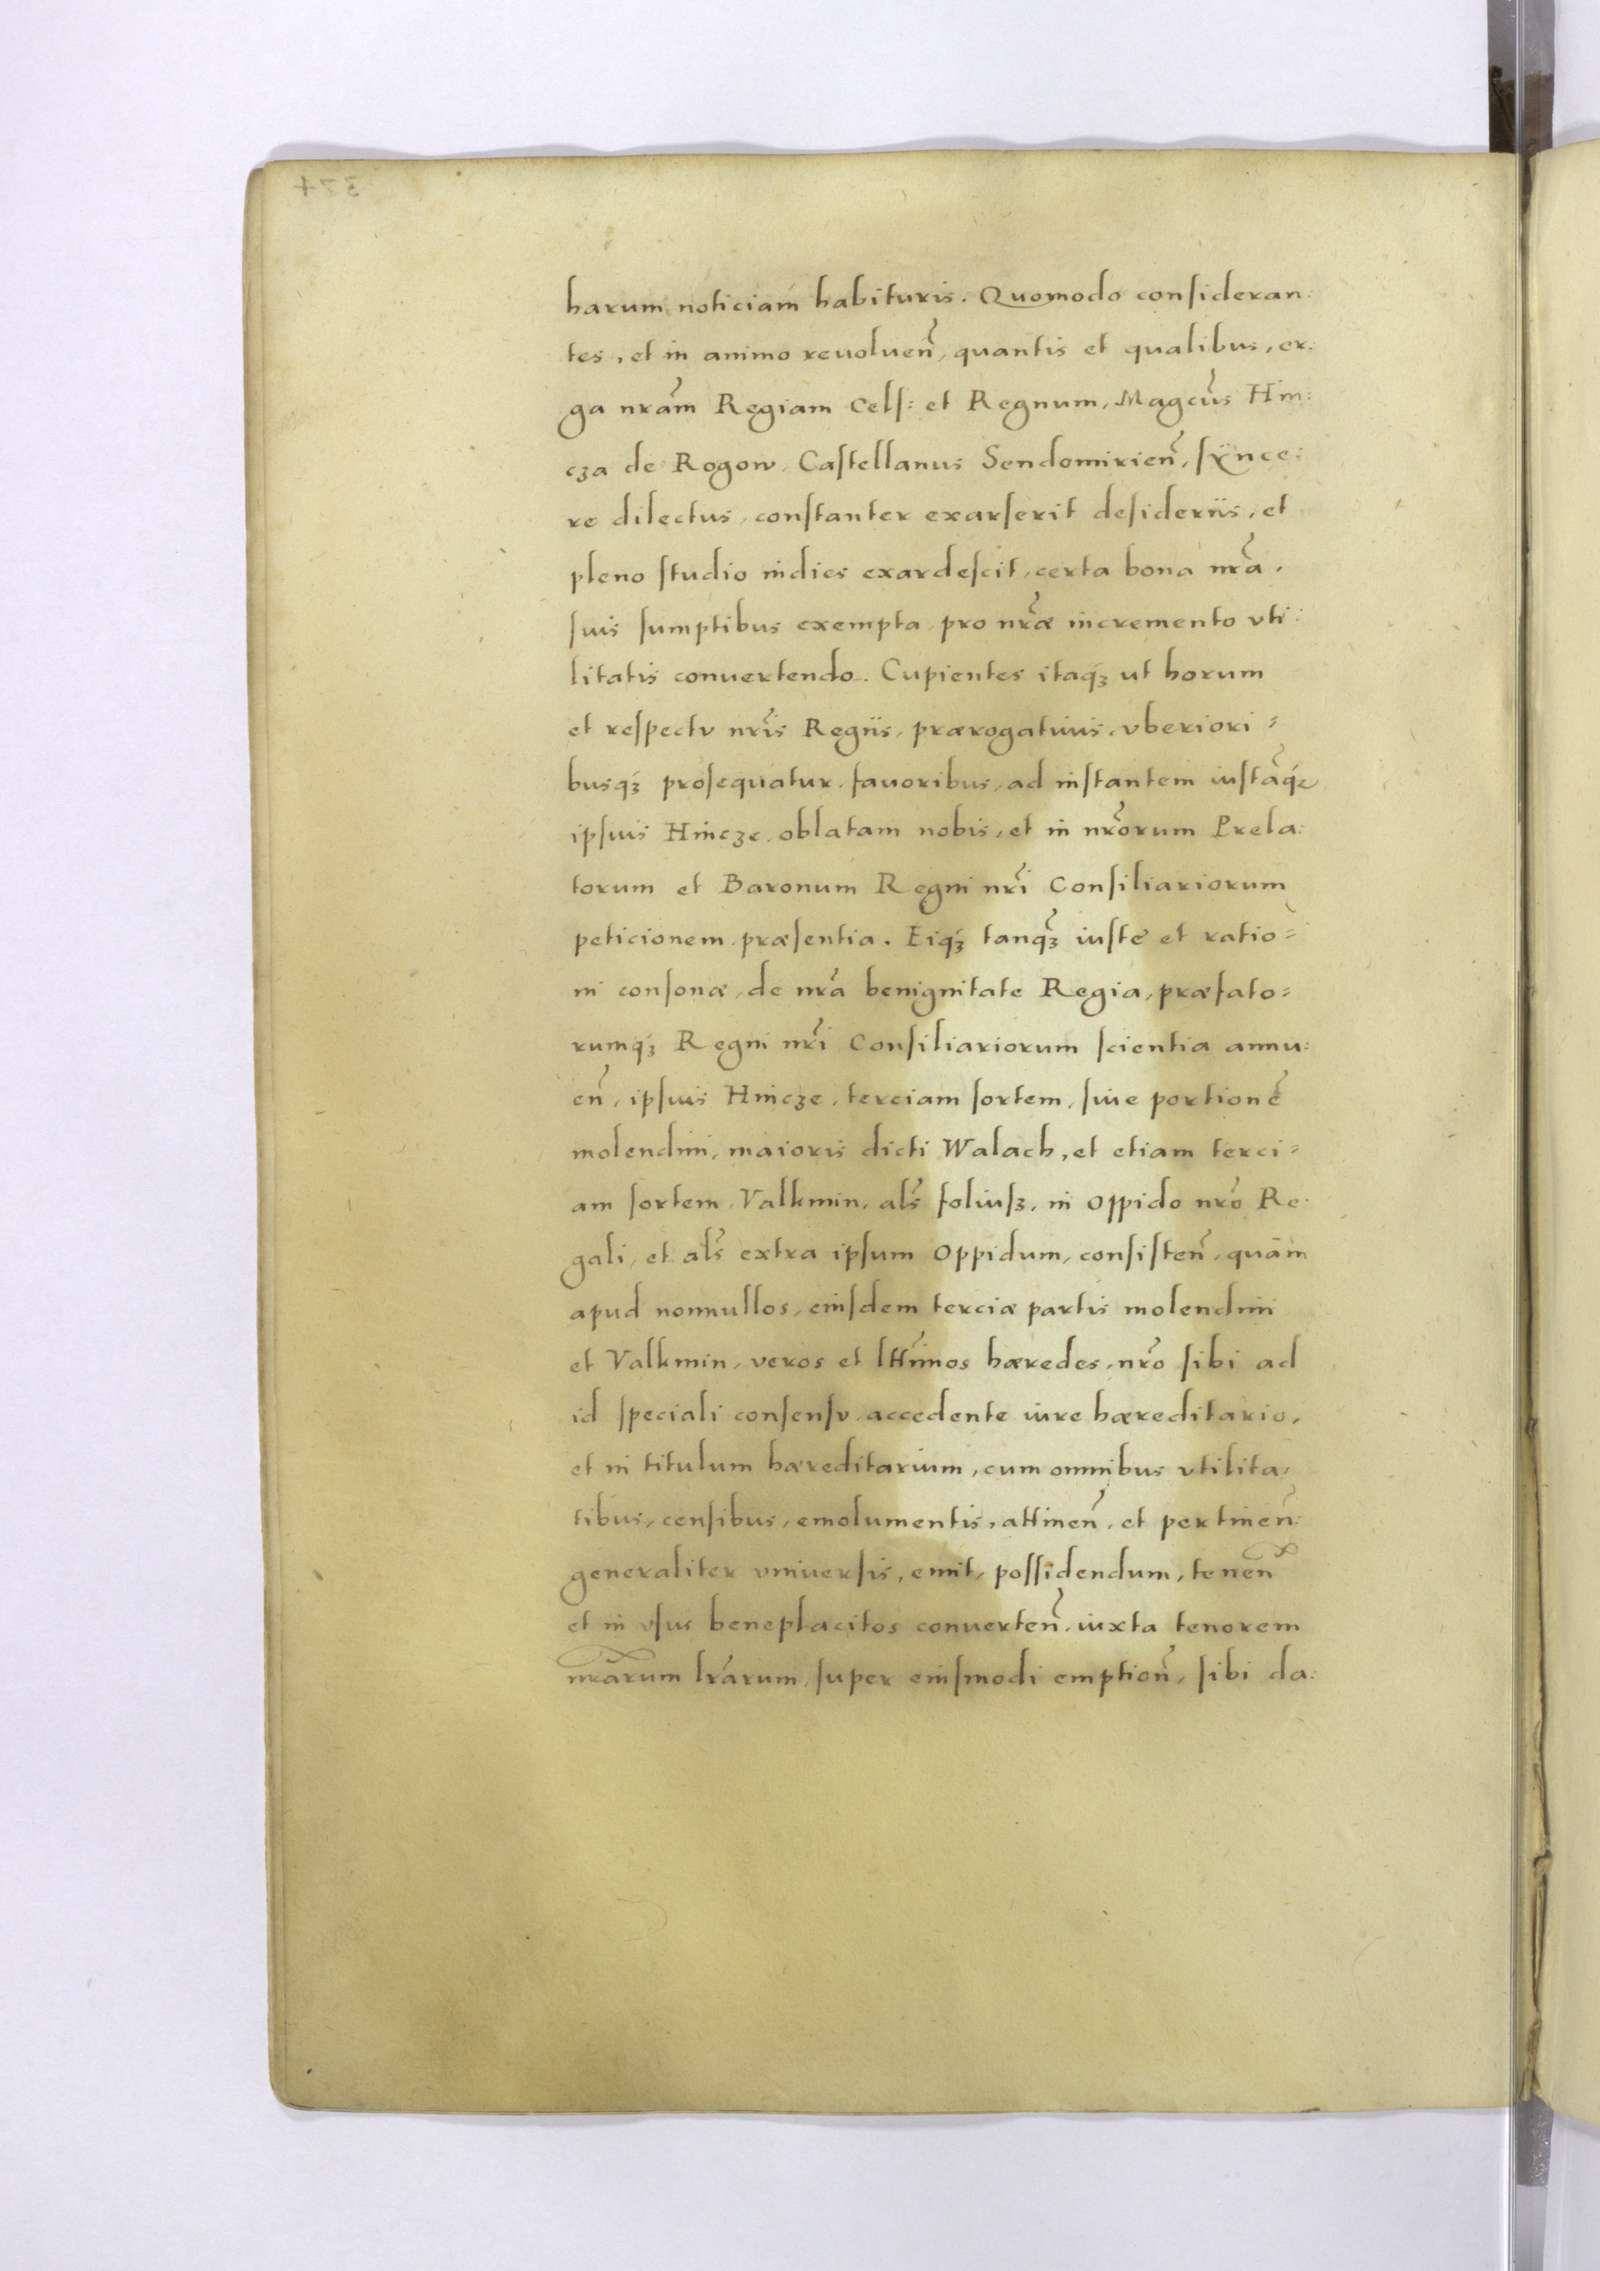 harum noticiam habituris. Quomodo consideran:
tes, et in animo reuoluen̄, quantis et qualibus, er:
ga nr̄am Regiam Cels: et Regnum, Magcūs Hin:
cza de Rogow, Castellanus Sendomirien̄, sÿnce:
re dilectus, constanter exarserit desideriis, et
pleno studio indies exardescit, certa bona nr̄a,
suis sumptibus exempta, pro nr̄æ incremento vti:
litatis conuertendo. Cupientes itaq́ꝫ ut horum
et respectu nr̄is Regiis, prærogatiuis, vberiori=
busq́ꝫ prosequatur, fauoribus, ad instantem iustāq́ꝫ
ipsuis Hincze, oblatam nobis, et in nr̄orum Prela:
torum et Baronum Regni nr̄i Consiliariorum
peticionem, præsentia. Eiq́ꝫ tanq̄ꝫ iustę et ratio=
ni consonæ, de nr̄a benignitate Regia, præfato=
rumq́ꝫ Regni nr̄i Consiliariorum scientia annu:
en̄, ipsius Hincze, terciam sortem, siue portionē
molendini, maioris dicti Walach, et etiam terci=
am sortem, Valkmin, als̄ foliusꝫ, in Oppido nr̄o Re:
gali, et als̄ extra ipsum Oppidum, consisten̄, quām
apud nonnullos, eiusdem terciæ partis molendini
et Valkmin, veros et lttīmos hæredes, nr̄o sibi ad
id speciali consensu, accedente iure hæreditario,
et in titulum hæreditarium, cum omnibus vtilita,
tibus, censibus, emolumentis, attinen̄, et pertinen̄:
generaliter vniuersis, emit, possidendum, tenen̄
et in vsus beneplacitos conuerten̄, iuxta tenorem
nr̄arum lr̄arum, super eiusmodi emption̄, sibi da: